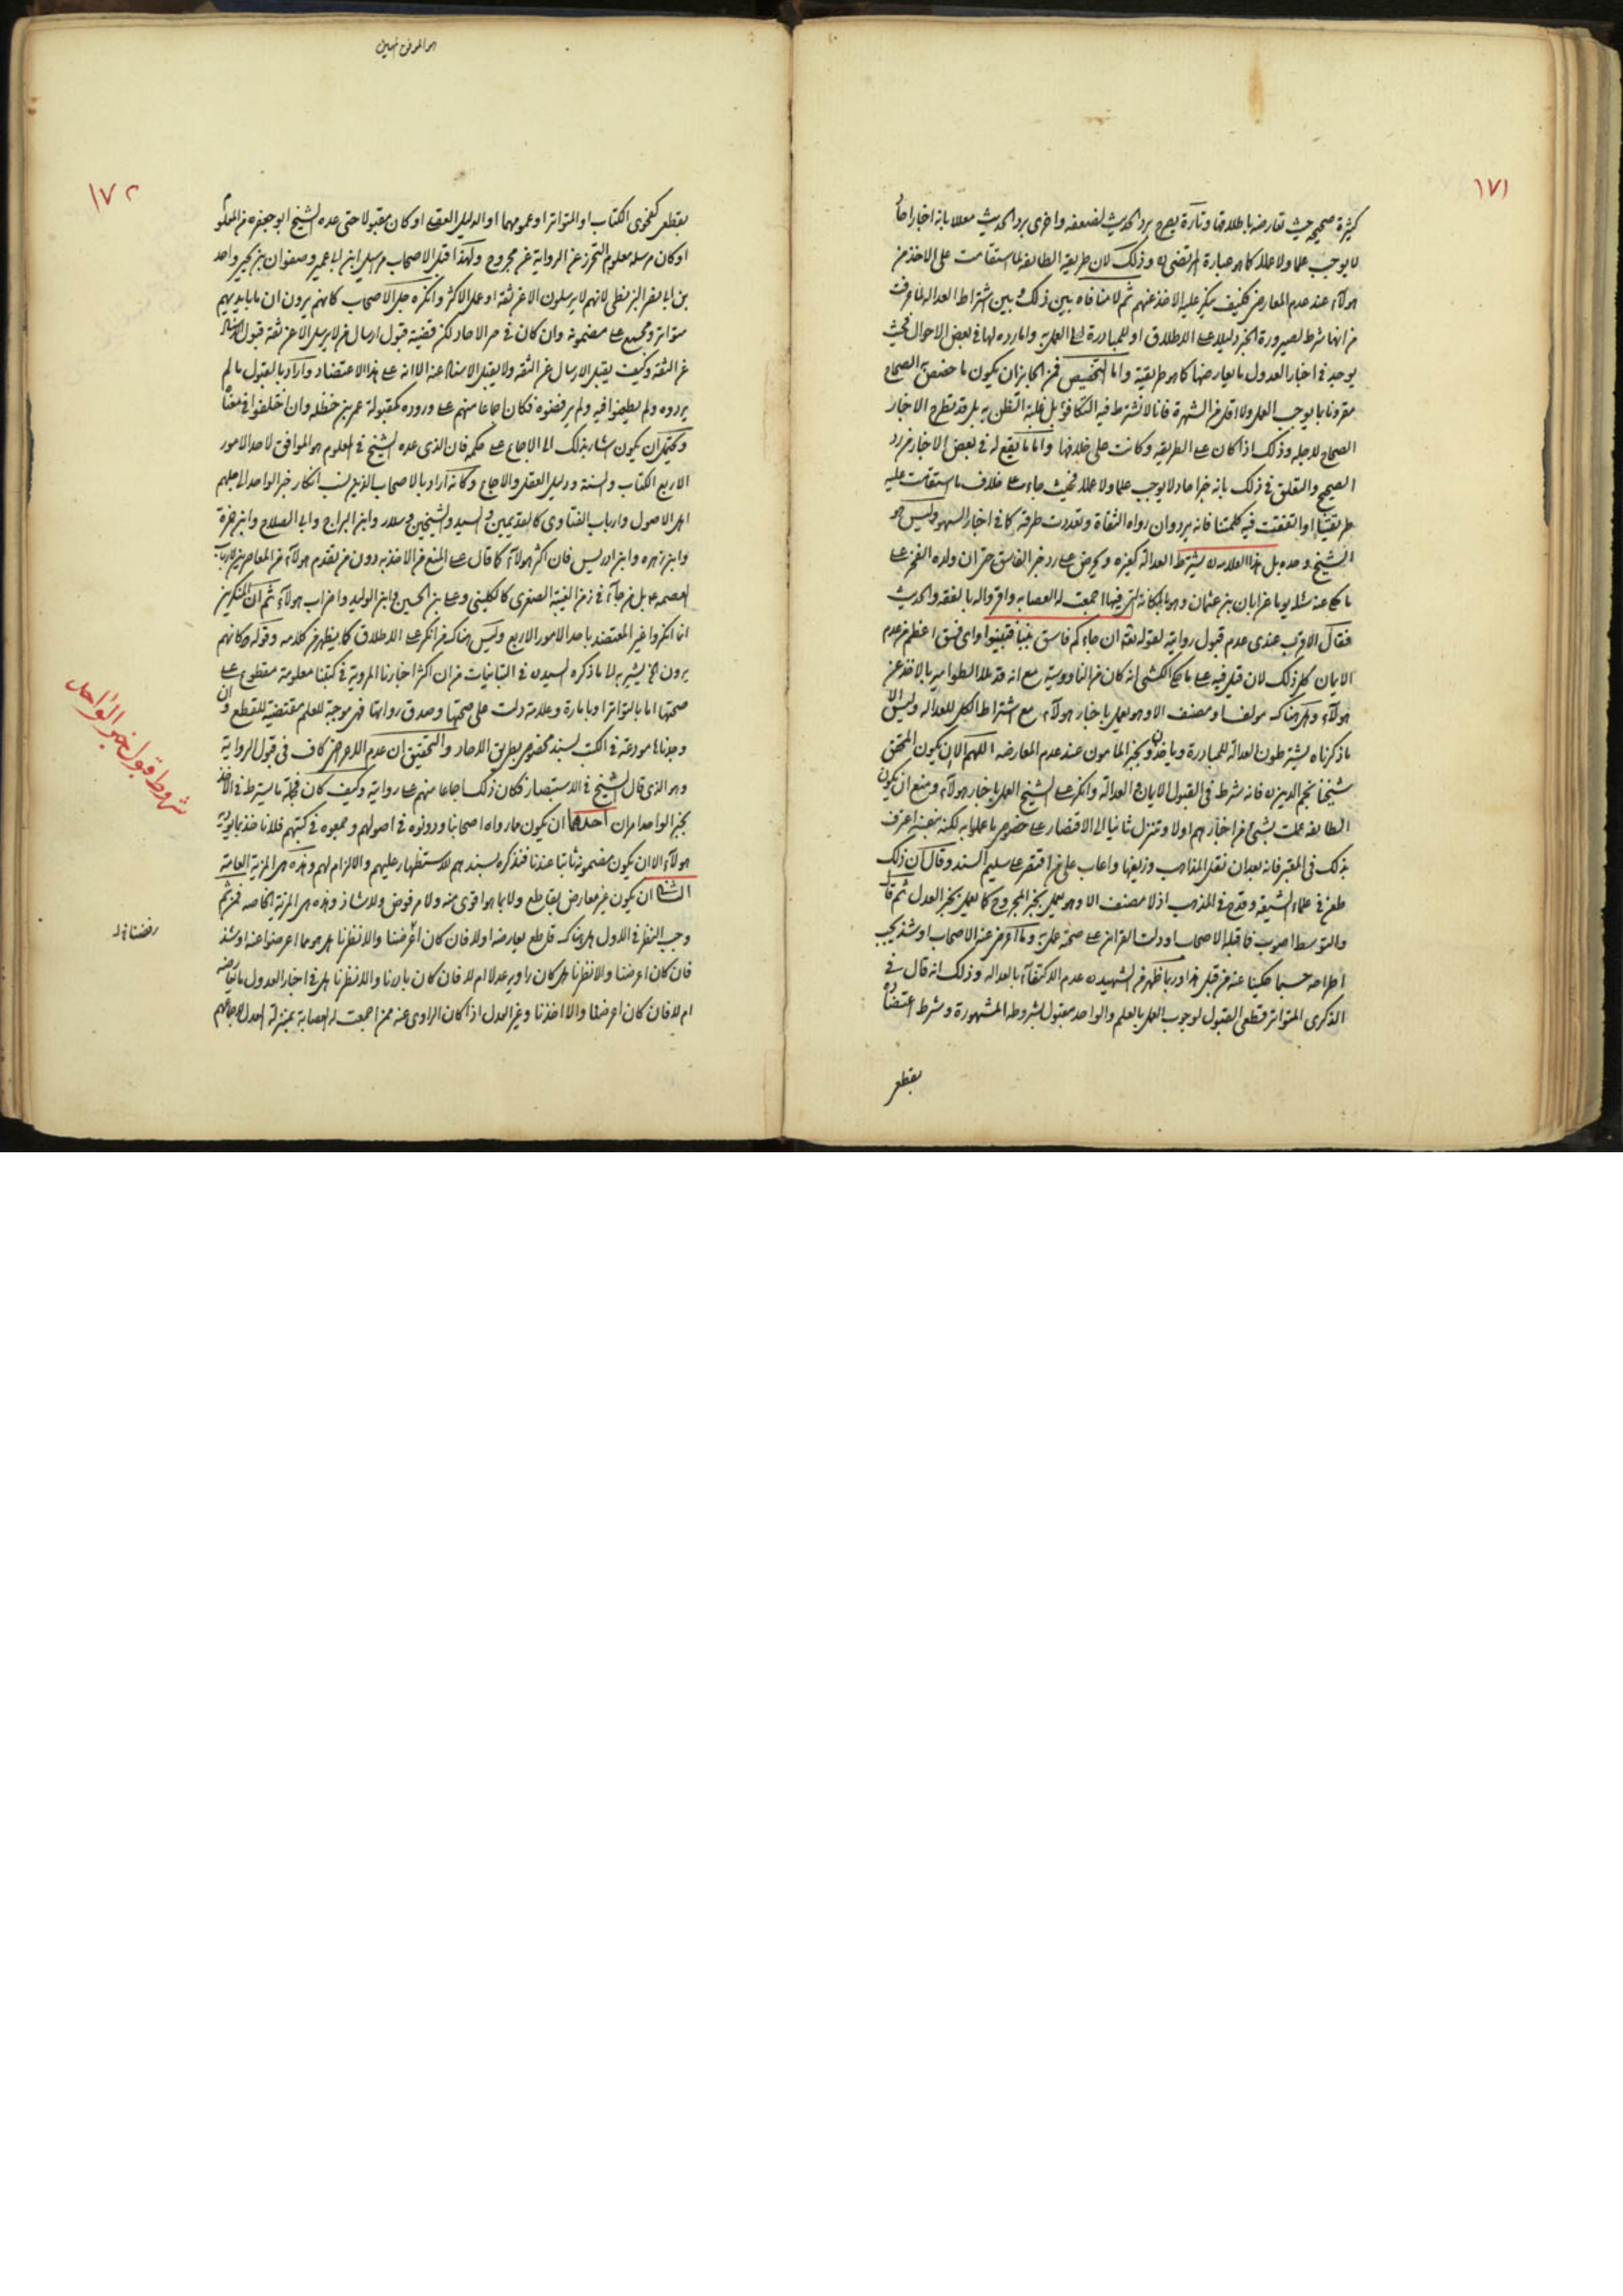 ١٧١
كثيرة صحيحة حيث تعارضه باطلاقها وتارة يصرح برد الحديث لضعفه واخرى برد الحديث معللا بانه اخبار احاد
لا يوجب علما ولا عملا كما هو عبارة المرتضى ره وذلك لان طريقة الطائفة لما استقامت على الاخذ من
هولآء عند عدم المعارض فكيف ينكر عليه الاخذ عنهم ثم لا منافاه بين ذلك وبين اشتراط العداله لما عرفت
من انها شرط لصيرورة الخبر دليلا على الاطلاق او للمبادرة الى العمل به واما رده لها في بعض الاحوال فحيث
يوجد في اخبار العدول ما يعارضها كما هو طريقته واما التخصيص فمن الجايز ان يكون ما خصص به الصحاح
مقرونا بما يوجب العمل ولا اقل من الشهرة فانا لا نشترط فيه التكافؤ بل غلبة الظن به بل قد تطرح الاخبار
الصحاح لاجله وذلك اذا كان على الطريقه وكانت على خلافها واما ما يقع له في بعض الاخبار من رد
الصحيح والتعلق في ذلك بانه خبر احاد لا يوجب علما ولا عملا فحيث جاء على خلاف ما استقامت عليه
طريقتنا او اتفقت فيه كلمتنا فانه يرد وان رواه الثقاة وتعددت طرقه كما في اخبار السهو وليس هو
الشيخ وحده بل هذا العلامه ره يشترط العدالة كغيره ويحرض على رد خبر الفاسق حتى ان ولده الفخر على
ما حكى عنه سئله يوما عن ابان بن عثمان وهو بالمكانة التي فيها اجمعت له العصابه واقروا له بالفقه والحديث
فقال الاقرب عندى عدم قبول روايته لقوله تعالى ان جاءكم فاسق بنبأ فتبينوا واى فسق اعظم من عدم
الايمان كل ذلك لان قيل فيه على ما حكى الكشى انه كان من الناووسية مع انه قد ملأ الطوامير بالاخذ عن
هولآء وهل هناك مولف او مصنف الا وهو يعمل باخبار هولآء مع اشتراط الكل للعداله وليس الا
ما ذكرناه يشترطون العدالة للمبادرة وياخذون بخبر المامون عند عدم المعارضه اللهم الا ان يكون المحقق
شيخنا نجم الدين ره فانه شرط في القبول الايمان والعدالة وانكر على الشيخ العمل باخبار هولآء ومنع ان يكون
الطائفه عملت بشئ من اخبارهم اولا وتنزل ثانيا الى الاقتصار على خصوص ما عملوا به لكنه بنفسه اعترف
بذلك في المعتبر فانه بعد ان نقل المذاهب وزيفها واعاب على من اقتصر على سليم السند وقال ان ذلك
طعن في علماء الشيعة وقدح في المذهب اذ لا مصنف الا وهو يعمل بخبر المجروح كما يعمل بخبر العدل ثم قال
والتوسط اصوب فما قبله الاصحاب او دلت القراين على صحته عمل به وما اعرض عنه الاصحاب او شذ يجب
اطراحه حسبما حكينا عنه من قبل هذا وربما ظهر من الشهيد ره عدم الاكتفآء بالعداله وذلك انه قال في
الذكرى المتواتر قطعى القبول لوجوب العمل بالعلم والواحد مقبول بشروطه المشهورة وشرط اعتضاده
بقطعى
١٧٢
بقطعى كفحوى الكتاب او المتواتر او عمومهما او الدليل العقلى او كان مقبولا حتى عده الشيخ ابو جعفر ره من المعلوم
او كان مرسله معلوم التحرز عن الرواية عن مجروح ولهذا قبل الاصحاب مراسيل ابن ابى عمير وصفوان بن يحيى واحمد
بن ابى نصر البزنطى لانهم لا يرسلون الا عن ثقة او عمل الاكثر وانكره جل الاصحاب كانهم يرون ان ما بايديهم
متواتر ومجمع على مضمونه وان كان في حيز الاحاد لكن قضية قبول ارسال من لا يرسل الا عن ثقة قبول الاسناد
عن الثقة وكيف يقبل الارسال عن الثقه ولا يقبل الاسناد عنه الا انه على هذا الاعتضاد واراد بالمقبول ما لم
يردوه ولم يطعنوا فيه ولم يرفضوه فكان اجماعا منهم على وروده كمقبولة عمر بن حنظله وان اختلفوا في معناه
ويحتمل ان يكون اشار بذلك الى الاجماع على حكمه فان الذى عده الشيخ في المعلوم هو الموافق لاحد الامور
الاربع الكتاب والسنة ودليل العقل والاجماع وكانه اراد بالاصحاب الذين نسب انكار خبر الواحد الى جلهم
اهل الاصول وارباب الفتاوى كالقديمين والسيد والشيخين وسلار وابن البراج وابى الصلاح وابن حمزة
وابن زهره وابن ادريس فان اكثر هولآء كما قال على المنع من الاخذ به دون من تقدم هولآء من المعاصرين لارباب
العصمه ع بل من جآء في زمن الغيبة الصغرى كالكلينى وعلى بن الحسين وابن الوليد واضراب هولآء ثم ان المنكرين
انما انكروا غير المعتضد باحد الامور الاربع وليس هناك من انكر على الاطلاق كما يظهر من كلامه وقوله وكانهم
يرون الخ يشير به الى ما ذكره السيد ره في التبانيات من ان اكثر اخبارنا المروية في كتبنا معلومة مقطوع على
صحتها اما بالتواتر او بامارة وعلامة دلت على صحتها وصدق رواتها فهى موجبة للعلم مقتضية للقطع وان
وجدناها مودعة في الكتب بسند مخصوص بطريق الاحاد والتحقيق ان عدم الاعراض كاف في قبول الرواية
وهو الذى قال الشيخ في الاستبصار فكان ذلك اجماعا منهم على روايته وكيف كان فجملة ما يشترط في الاخذ
بخبر الواحد امران احدهما ان يكون مما رواه اصحابنا ودونوه في اصولهم وجمعوه في كتبهم فلا ناخذ بما يرويه
هولآء الا ان يكون مضمونه ثابتا عندنا فنذكره بسندهم للاستظهار عليهم والالزام لهم وهذه هى المزية العامة
الثانى ان يكون غير معارض بقاطع ولا بما هو اقوى منه ولا مرفوض ولا شاذ وهذه هى المزية الخاصه فمن ثم
وجب النظر في الاول هل هناك قاطع يعارضه او لا فان كان اعرضنا والا نظرنا هل هو مما اعرضوا عنه او شذ
فان كان اعرضنا والا نظرنا هل كان راويه عدلا ام لا فان كان بادرنا والا نظرنا هل في اخبار العدول ما يعارضه
ام لا فان كان اعرضنا والا اخذنا وغير العدل اذا كان الراوى عنه ممن اجمعت له العصابة بمنزلة العدل لاجماعهم
شروط قبول خبر الواحد